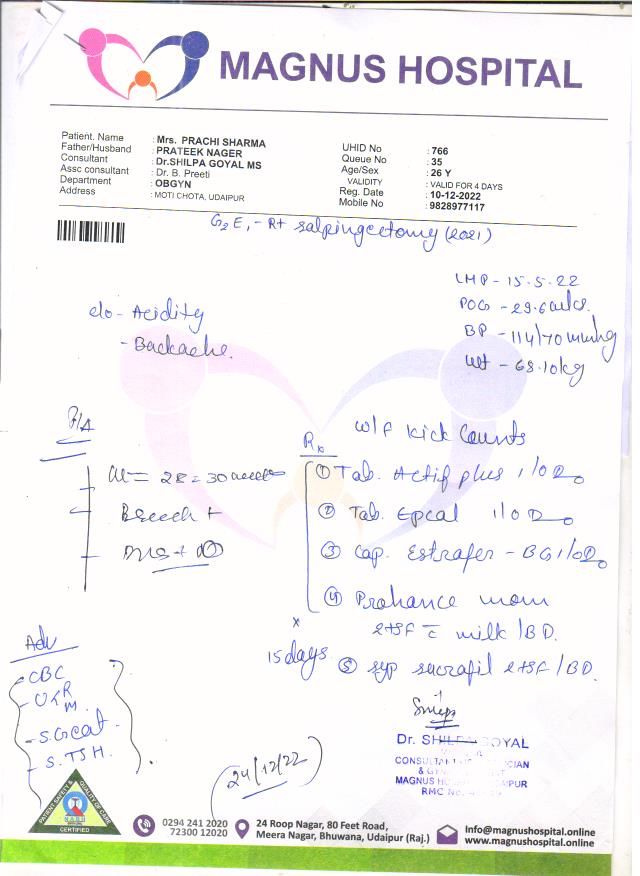 MAGNUS HOSPITAL
Patient. Name : Mrs. PRACHI SHARMA
Father/Husband : PRATEEK NAGER
Consultant : Dr.SHILPA GOYAL MS
Assc consultant : Dr. B. Preeti
Department : OBGYN
Address : MOTI CHOTA, UDAIPUR
UHID No : 766
Queue No : 35
Age/Sex : 26 Y
VALIDITY : VALID FOR 4 DAYS
Reg. Date : 10-12-2022
Mobile No : 9828977117
G2 E1 - Rt salpingectomy (2021)
LMP - 15.5.22
POG - 29.6 wks.
BP - 114/70 mmhg
Wt - 68.10kg
c/o - Acidity
- Backache.
P/A
28-30 week
Breech +
FHS +
W/F Kick Counts
Rx
① Tab. Actif plus 1/OD
② Tab. Epcal 1/OD
③ Cap. Estrafer - BG 1/OD
④ Prohance mom
2tsf c̄ milk /BD.
x 15 days
⑤ syp sucrafil 2tsf /BD.
Adv
- CBC
- S. TSH.
24/12/22
Dr. SHILPA GOYAL
MAGNUS HOSPITAL UDAIPUR
RMC No.
PATIENT SAFETY & QUALITY OF CARE
CERTIFIED
0294 241 2020
72300 12020
24 Roop Nagar, 80 Feet Road,
Meera Nagar, Bhuwana, Udaipur (Raj.)
Info@magnushospital.online
www.magnushospital.online